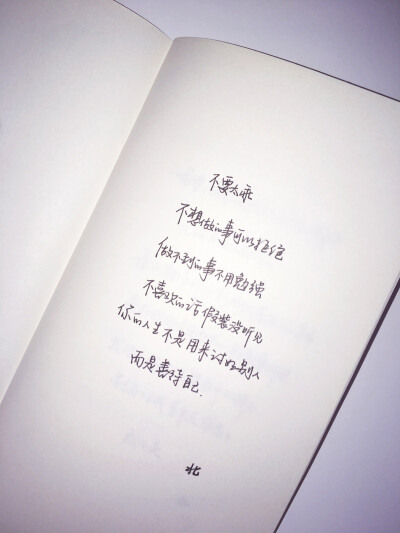 不要太乖
不想做的事可以拒绝
做不到的事不用勉强
不喜欢的话假装没听见
你的人生不是用来讨好别人
而是善待自己.
北